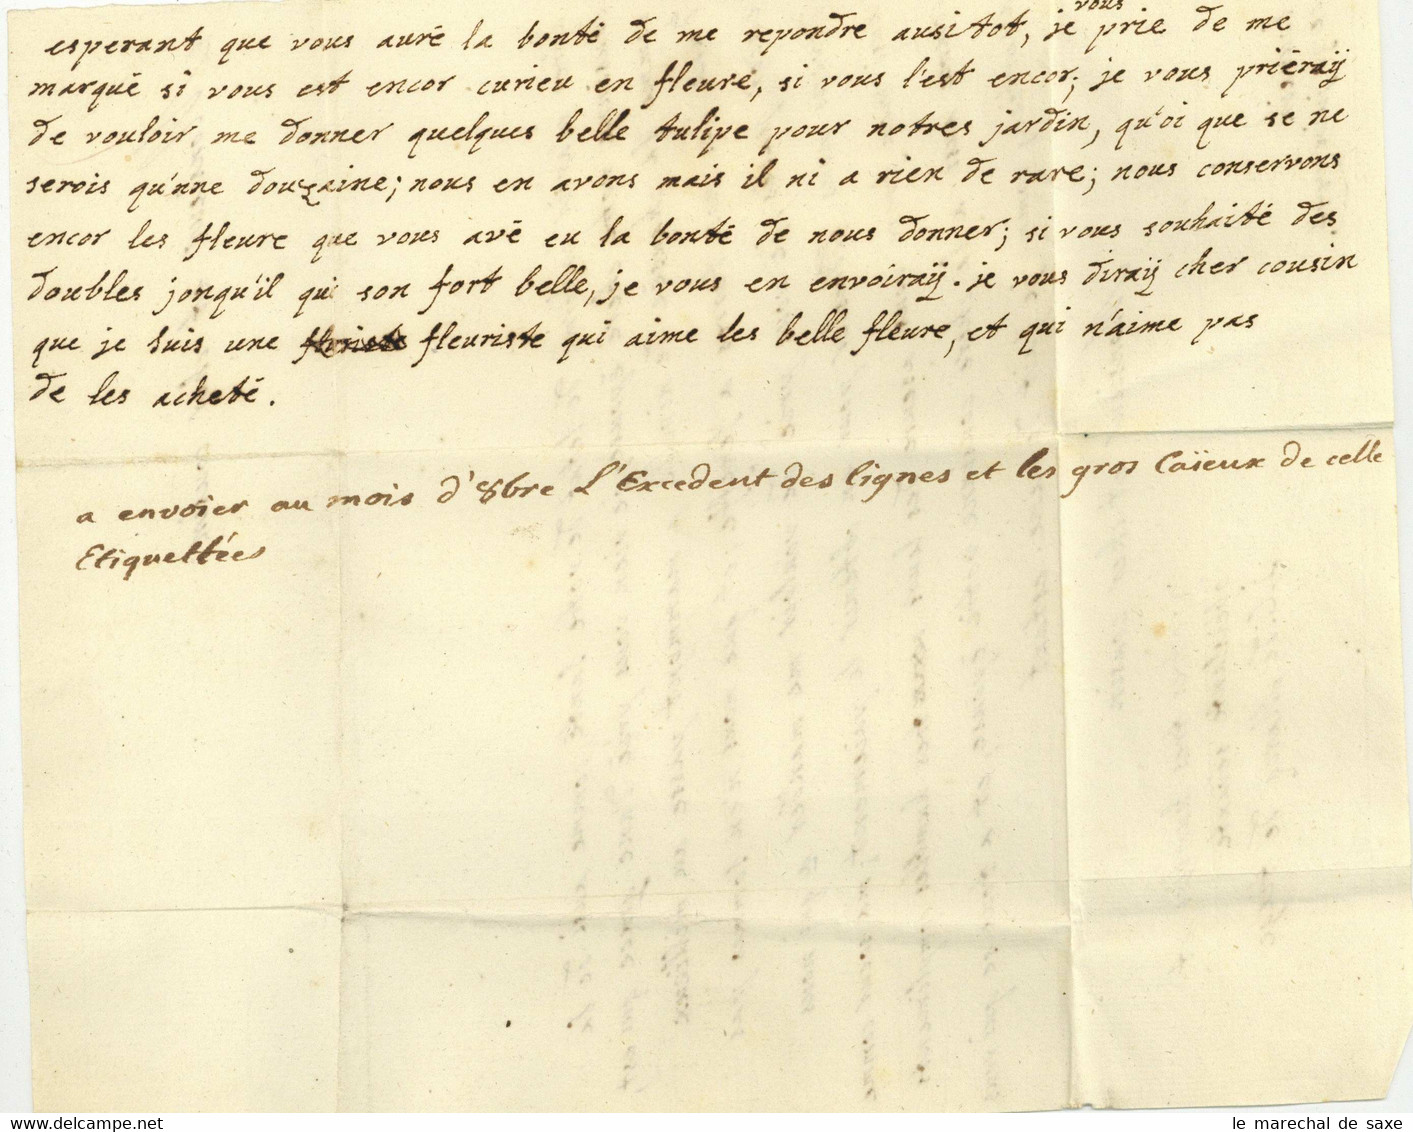 esperant que vous auré la bonté de me repondre ausitot, je vous prie de me
marqué si vous est encor curieu en fleure, si vous l'est encor; je vous priéraÿ
de vouloir me donner quelques belle tulipe pour notres jardin, qu'oi que se ne
serois qu'nne douzaine; nous en avons mais il ni a rien de rare; nous conservons
encor les fleure que vous avé eu la bonté de nous donner; si vous souhaité des
doubles jonqu'il qui son fort belle, je vous en envoiraÿ. je vous diraÿ cher cousin
que je suis une fleuriste qui aime les belle fleure, et qui n'aime pas
de les acheté.
a envoier au mois d'8bre L'Excedent des lignes et les gros Caïeux de celle
Etiquettées
le marechal de saxe